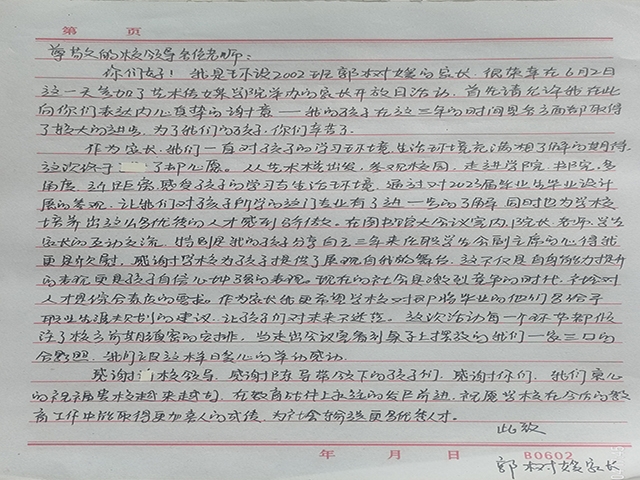 第 页
尊敬的校领导各位老师:
你们好!我是环设2002班郭树媛的家长,很荣幸在6月2日
这一天参加了艺术传媒学院举办的家长开放日活动,首先请允许我在此
向你们表达内心真挚的谢意——我的孩子在这三年的时间里各方面都取得
了较大的进步,为了我们的孩子,你们辛苦了。
作为家长,我们一直对孩子的学习环境,生活环境充满想了解的期待,
这次终于 了却心愿。从艺术楼出发,参观校园,走进学院,书院,多
角度,近距离感受孩子的学习与生活环境,通过对2023届毕业生毕业设计
展的参观,让我们对孩子所学的这门专业有了进一步的了解,同时也为学校
培养出这么多优秀的人才感到骄傲。在图书馆大会议室内,院长,老师,学生
家长的互动交流,特别是我的孩子分享自己三年来任职学生会副主席的心得我
更是欣慰,感谢学校为孩子提供了展现自我的舞台,这不仅是自身能力提升
的表现更是孩子自信心加强的表现。现在的社会是激烈竞争的时代,社会对
人才是综合素质的需求。作为家长他更希望学校对即将毕业的他们多给予
职业生涯规划的建议,让孩子们对未来不迷茫。这次活动每一个环节都倾
注了校方前期缜密的安排,当走出会议室看到桌子上摆放的我们一家三口的
合影照,我们被这样暖心的举动感动。
感谢 校领导,感谢陪导带领下的孩子们,感谢你们,我们衷心
的祝福学校越来越好,在教育战线上永远的发展前进,祝愿学校在今后的教
育工作中能取得更加喜人的成绩,为社会输送更多优秀人才。
此致
年 月 日 B0602
郭树媛家长